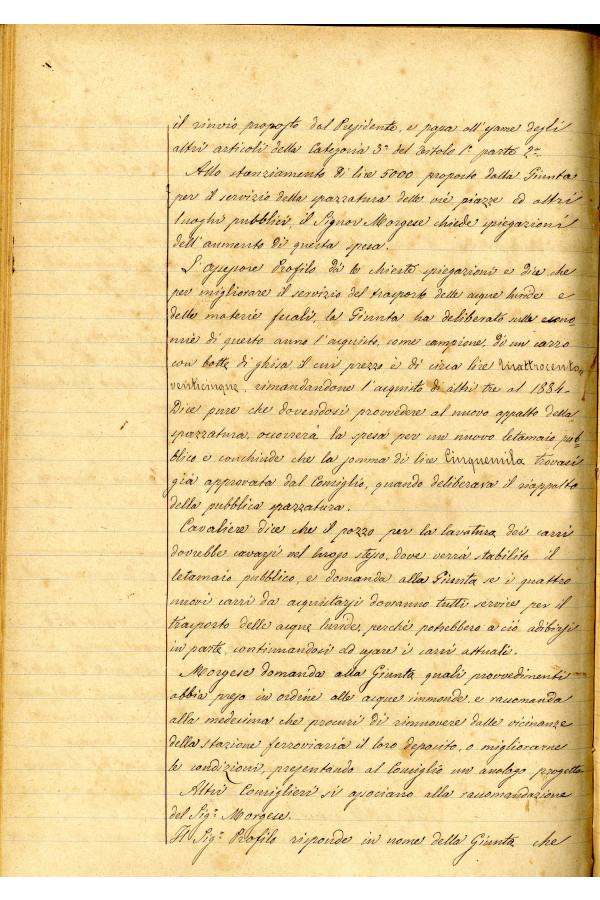 il rinvio proposto dal Presidente, e passa all'esame degli
altri articoli della Categoria 3ª del Titolo 1º parte 2ª.
Allo stanziamento di lire 5000 proposto dalla Giunta
per il servizio della spazzatura delle vie piazze ed altri
luoghi pubblici, il Signor Morgese chiede spiegazioni
dell'aumento di questa spesa.
L'Assessore Profilo dà le chieste spiegazioni e dice che
per migliorare il servizio del trasporto delle acque lunde e
delle materie fecali, la Giunta ha deliberato sulle econo
mie di questo anno l'acquisto, come campione, di un carro
con botte di ghisa, il cui prezzo è di circa lire Quattrocento
venticinque, rimandandone l'acquisto di altri tre al 1884.
Dice pure che dovendosi provvedere al nuovo appalto della
spazzatura, occorrerà la spesa per un nuovo letamaio pub=
blico e conchiude che la somma di lire Cinquemila trovasi
già approvata dal Consiglio, quando deliberava il riappalto
della pubblica spazzatura.
Cavaliere dice che il pozzo per la lavatura dei carri
dovrebbe cavarsi nel luogo stesso, dove verrà stabilito il
letamaio pubblico, e domanda alla Giunta se i quattro
nuovi carri da acquistarsi dovranno tutti servire per il
trasporto delle acque lunde, perché potrebbero a ciò adibirsi
in parte, continuandosi ad usare i carri attuali.
Morgese domanda alla Giunta quali provvedimenti
abbia preso in ordine alle acque immonde, e raccomanda
alla medesima che procuri di rimuovere dalle vicinanze
della stazione ferroviaria il loro deposito, o migliorarne
le condizioni, presentando al Consiglio un analogo progetto
Altri Consiglieri si associano alla raccomandazione
del Sigr Morgese.
Il Sigr Profilo risponde in nome della Giunta che